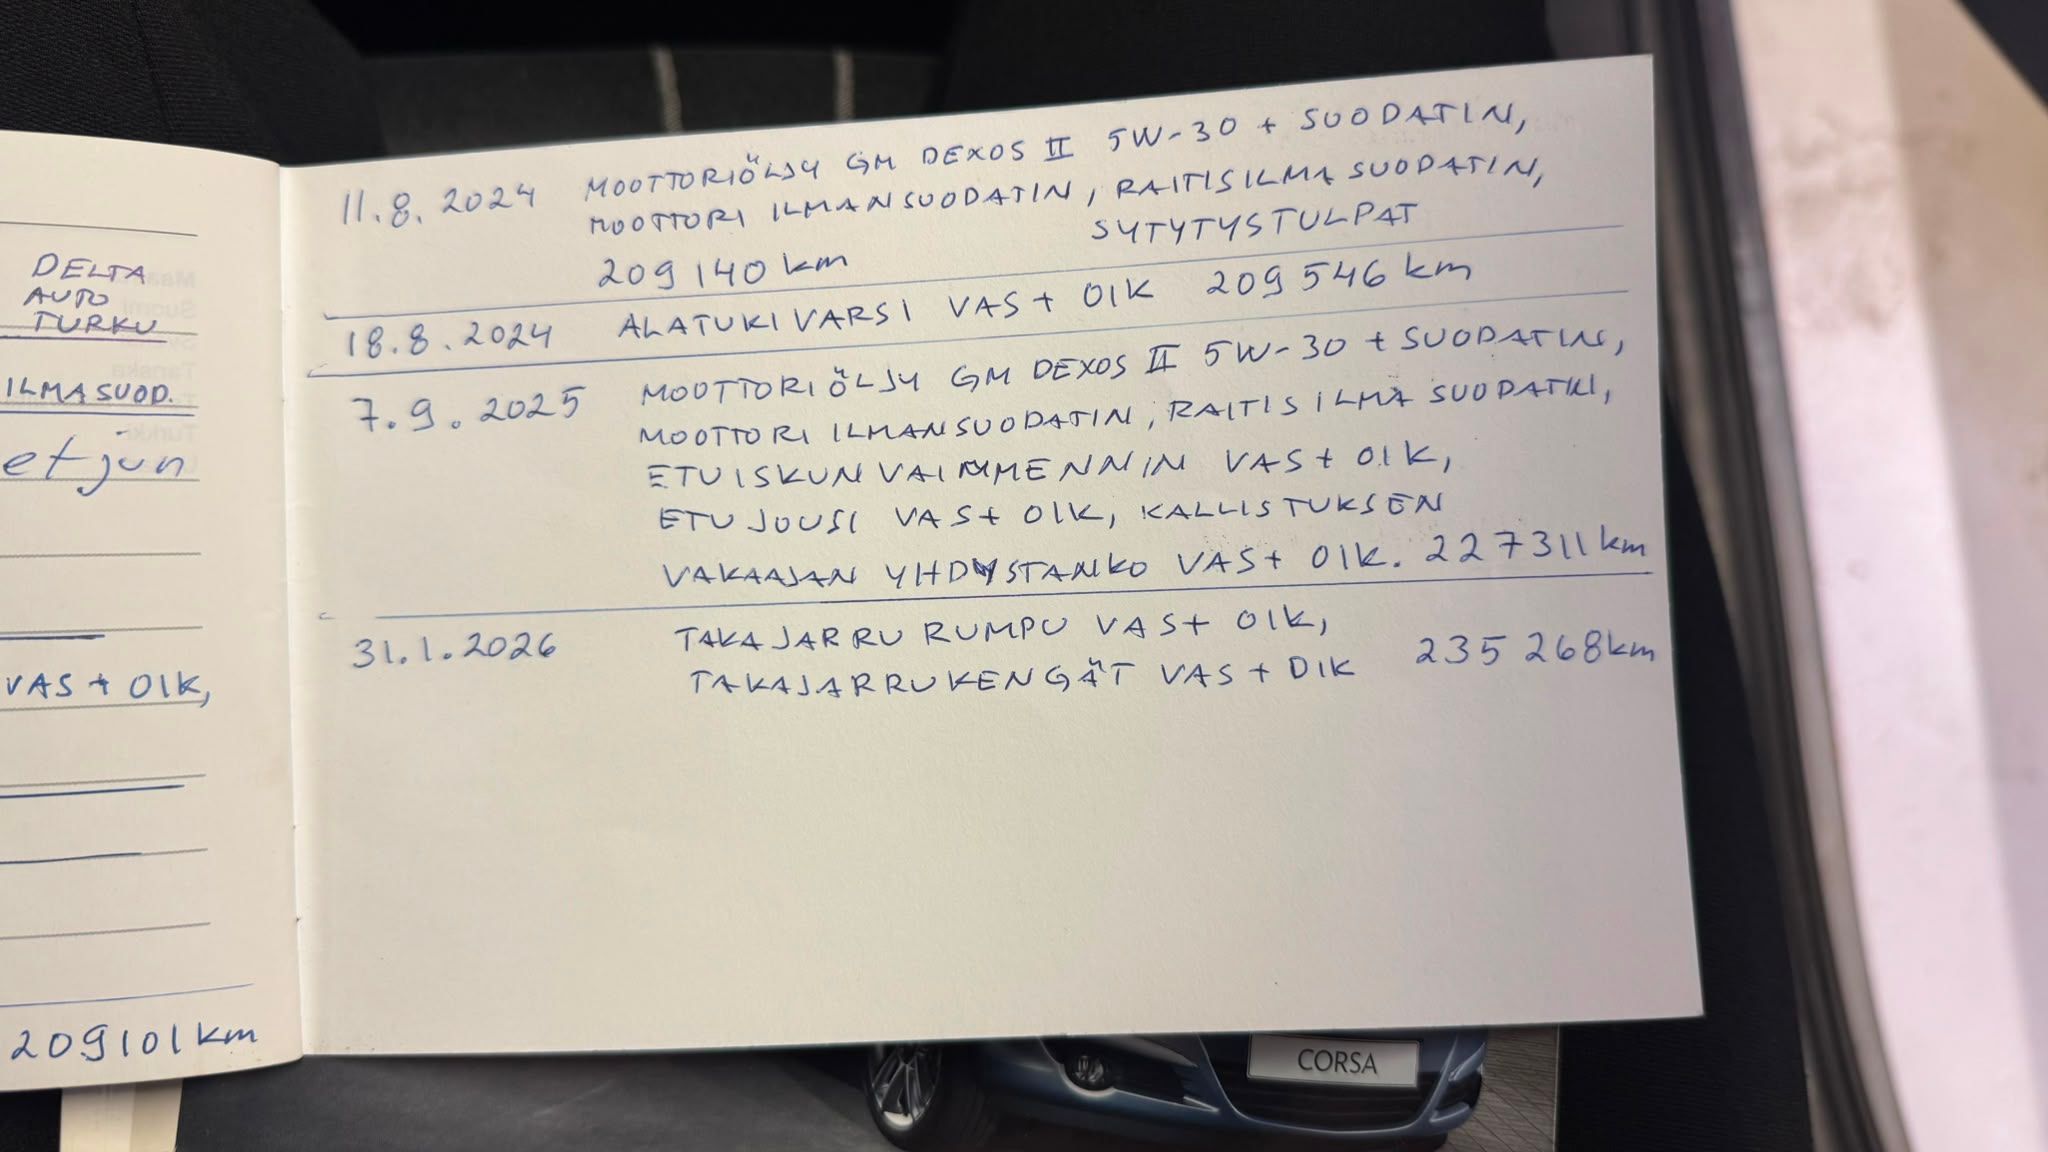 DELTA
AUTO
TURKU
ILMASUOD.
et jun
VAS + OIK,
209101 km
11.8.2024 MOOTTORIÖLJY GM DEXOS II 5W-30 + SUODATIN,
MOOTTORI ILMANSUODATIN, RAITISILMASUODATIN,
SYTYTYSTULPAT
209140 km
18.8.2024 ALATUKIVARSI VAS + OIK 209546 km
7.9.2025 MOOTTORIÖLJY GM DEXOS II 5W-30 + SUODATIN,
MOOTTORI ILMANSUODATIN, RAITISILMASUODATIN,
ETUISKUNVAIMMENNIN VAS + OIK,
ETUJOUSI VAS + OIK, KALLISTUKSEN
VAKAAJAN YHDYSTANKO VAS + OIK. 227311 km
31.1.2026 TAKAJARRURUMPU VAS + OIK,
TAKAJARRUKENGÄT VAS + OIK 235 268 km
CORSA